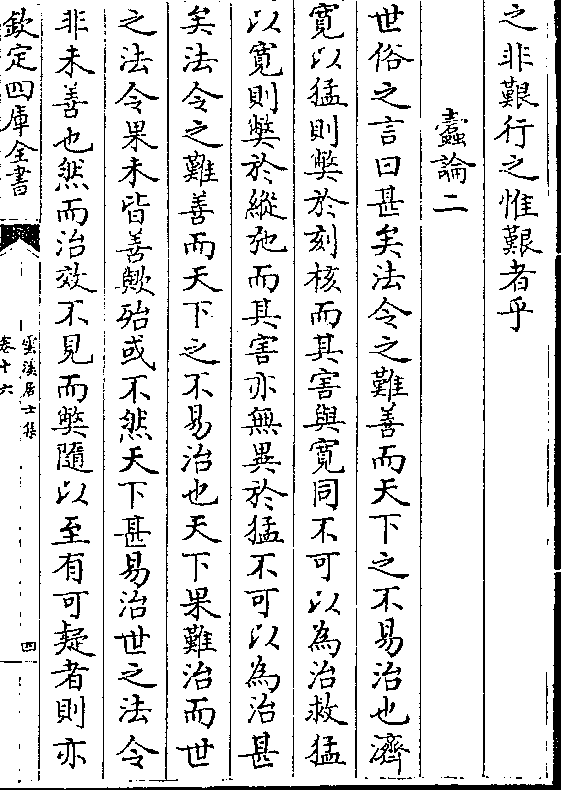 之非艱行之惟艱者乎
蠹論二
世俗之言曰甚矣法令之難善而天下之不易治也濟
寛以猛則獘於刻核而其害與寛同不可以為治救猛
以寛則獘於縱弛而其害亦無異於猛不可以為治甚
矣法令之難善而天下之不易治也天下果難治而世
之法令果未皆善歟殆或不然天下甚易治世之法令
非未善也然而治效不見而獘隨以至有可疑者則亦
欽定四庫全書
雲溪居士集
卷十六
四